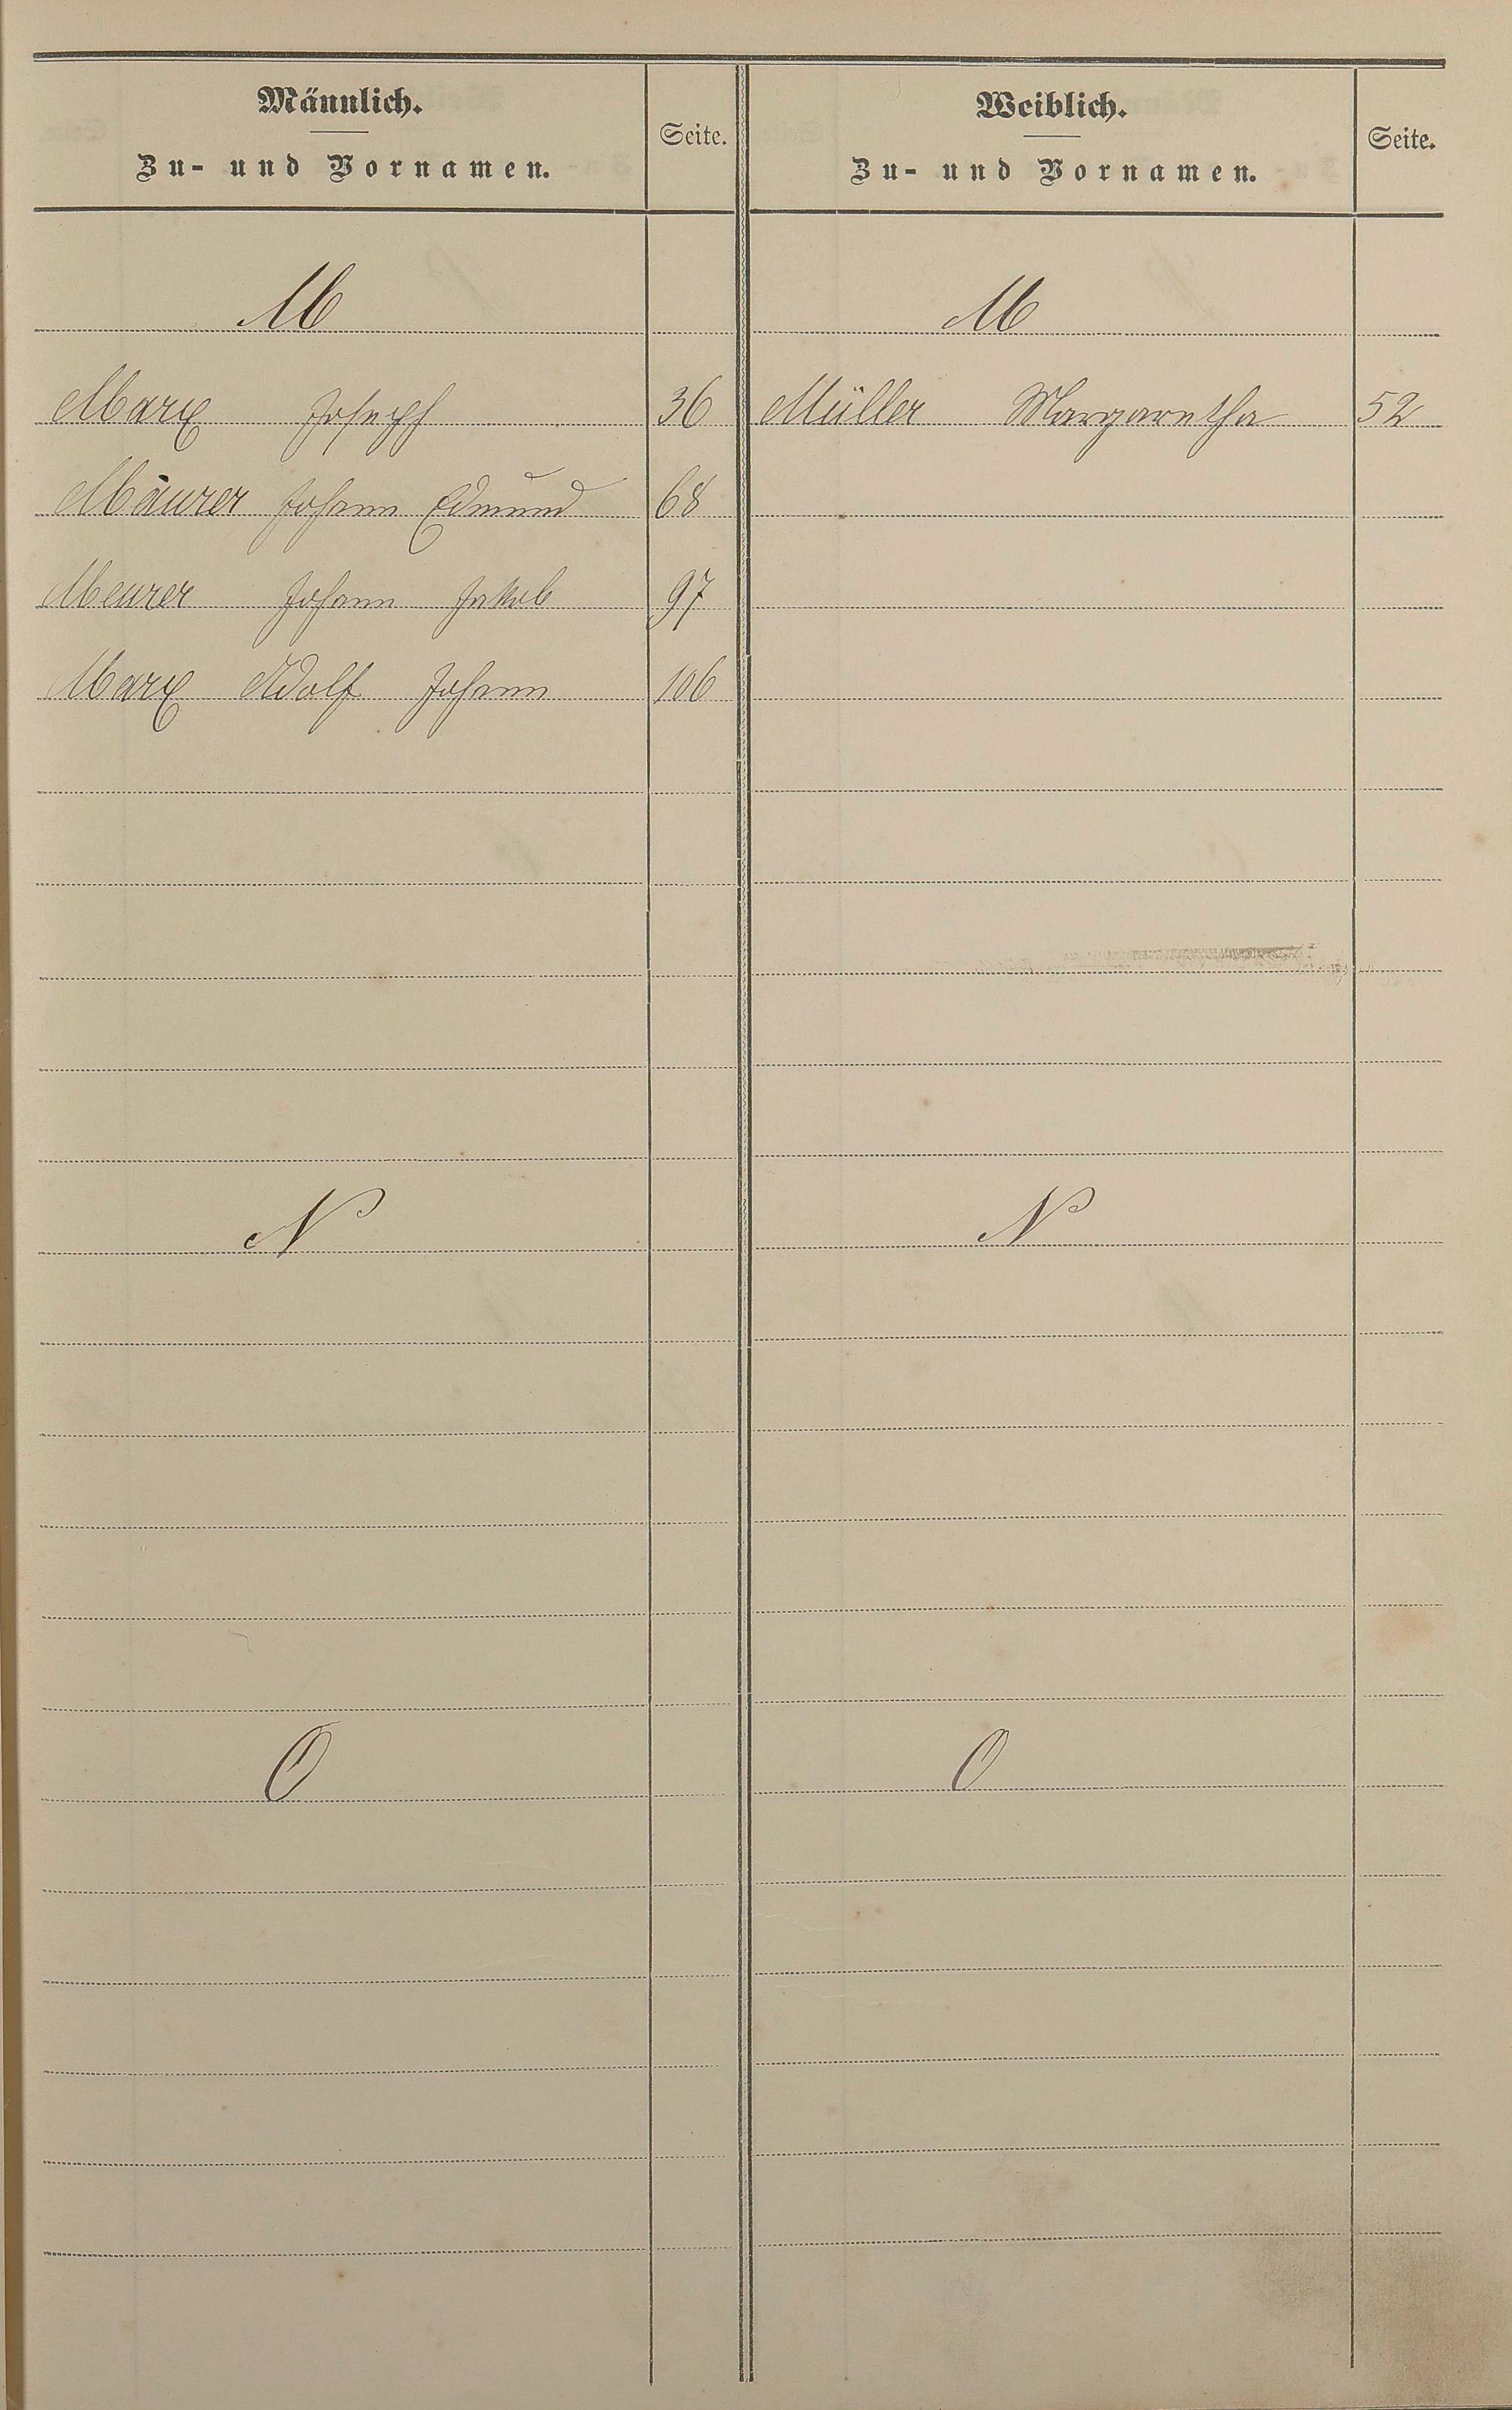 Männlich.
Zu- und Vornamen.
Seite.
Weiblich.
Zu- und Vornamen.
Seite.
M
M
Marx Joseph 36
Müller Margaretha 52
Mäurer Johann Edmund 68
Meurer Johann Jakob 97
Marx Adolf Johann 106
N
N
O
O